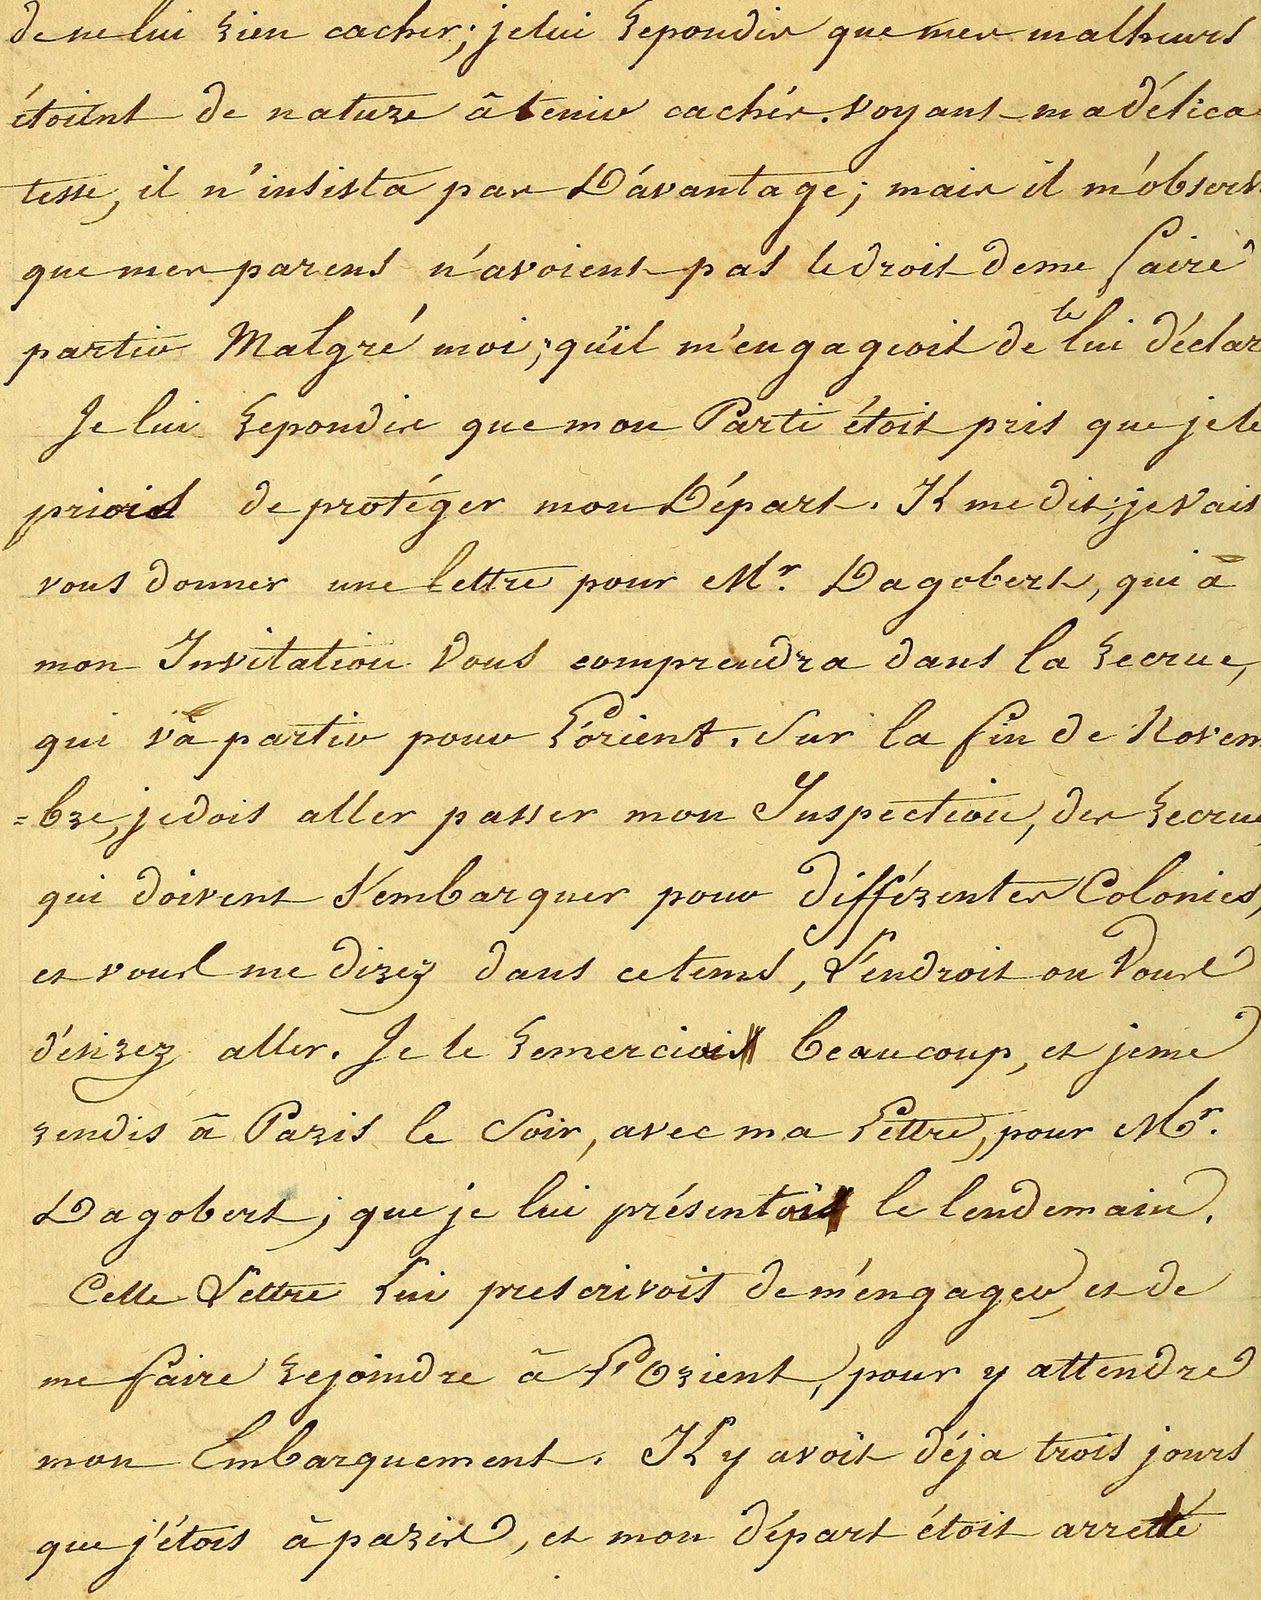 de ne lui rien cacher; je lui repondis que mes malheurs
étoient de nature â tenir cachés. voyant ma délica
tesse, il n'insista pas D'avantage; mais il m'observ
que mes parens n'avoient pas le droit de me faire
partir Malgré moi; qu'il m'engageoit de le lui déclar
Je lui repondis que mon Parti étoit pris que je le
priois de protéger mon Départ. Il me dit; je vais
vous donner une lettre pour Mr. Dagobert, qui à
mon Invitation vous comprendra dans la recrue,
qui va partir pour L'orient. Sur la fin de Novem
=bre, je dois aller passer mon Inspection, des recrue
qui doivent s'embarquer pour différentes Colonies,
et vous me direz dans ce tems, L'endroit ou vous
désirez aller. Je le remerciai beaucoup, et je me
rendis â Paris le Soir, avec ma Lettre, pour Mr.
Dagobert; que je lui présentai le lendemain.
Cette Lettre Lui prescrivoit de m'éngager, et de
me faire rejoindre â L'Orient, pour y attendre
mon Embarquement. Il y avoit déja trois jours
que j'étois à paris, et mon départ étoit arretté